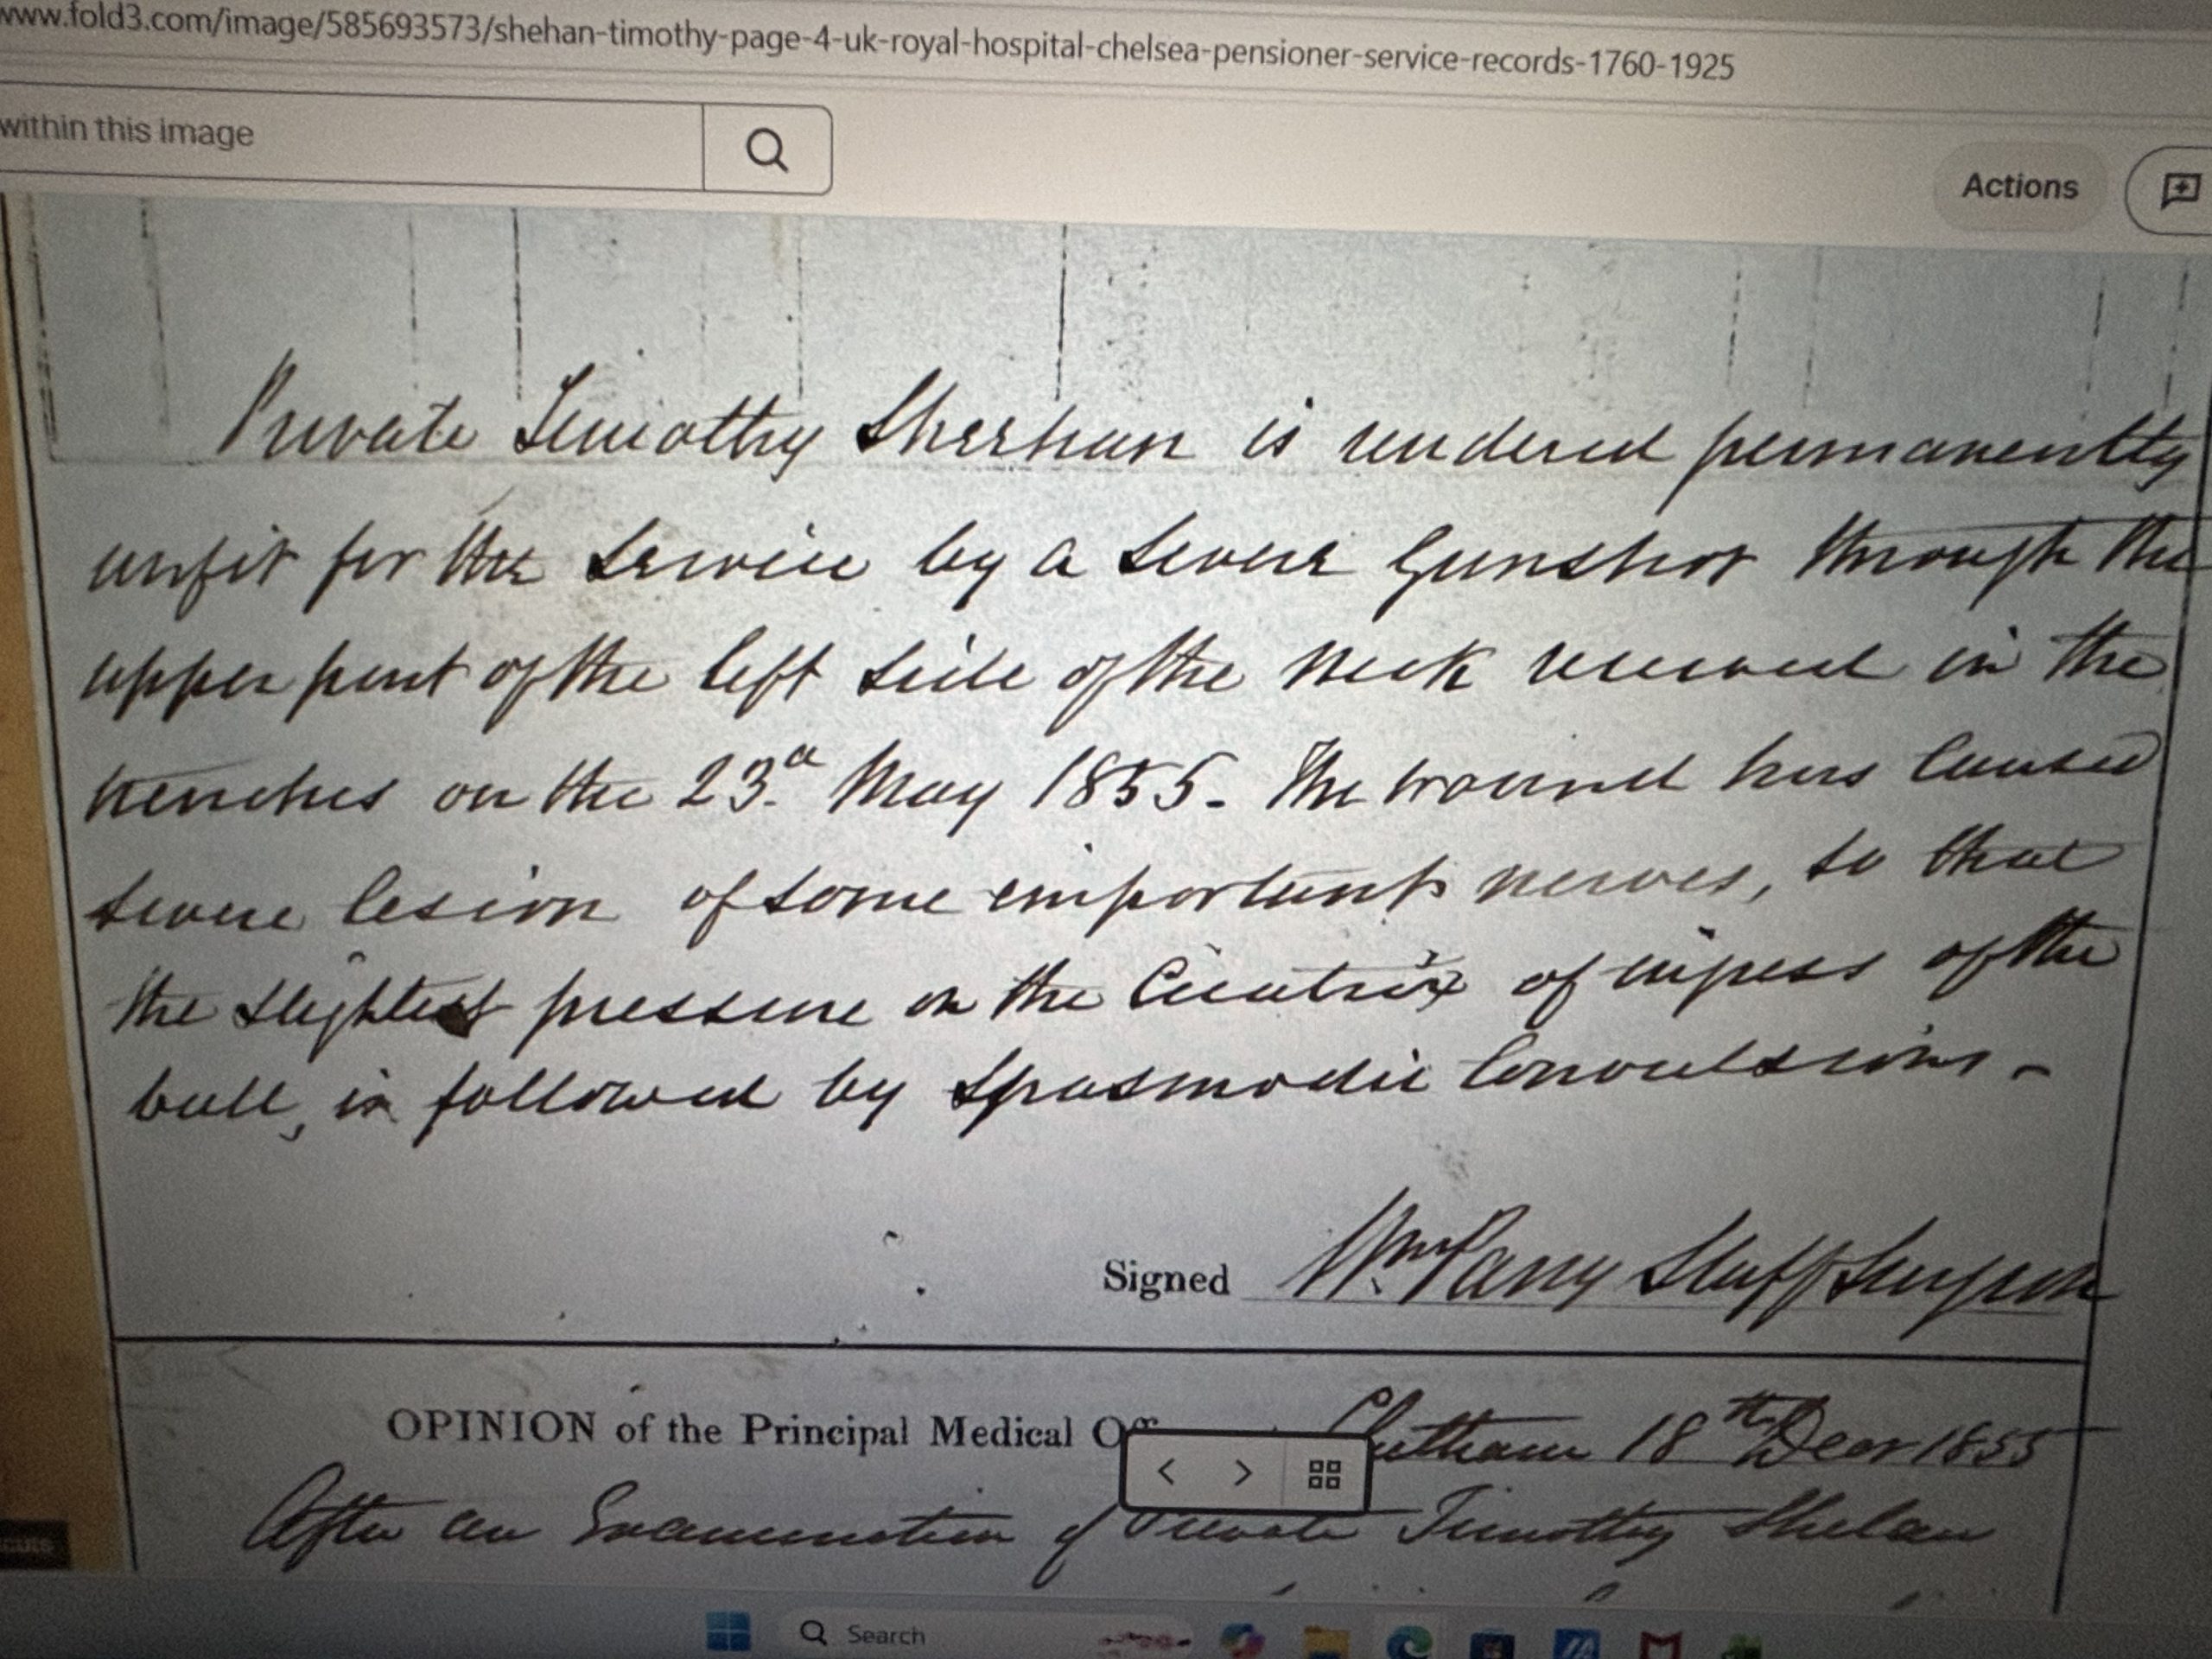 www.fold3.com/image/585693573/shehan-timothy-page-4-uk-royal-hospital-chelsea-pensioner-service-records-1760-1925
within this image
Actions
Private Timothy Sheehan is rendered permanently
unfit for the Service by a severe Gunshot through the
upper part of the left side of the neck received in the
trenches on the 23.d May 1855. The wound has caused
severe lesion of some important nerves, so that
the slightest pressure on the Cicatrix of ingress of the
ball, is followed by Spasmodic Convulsions.-
Signed Wm Parry Staff Surgeon
OPINION of the Principal Medical Off Chatham 18th Decr 1855
After an Examination of Private Timothy Shehan
Search